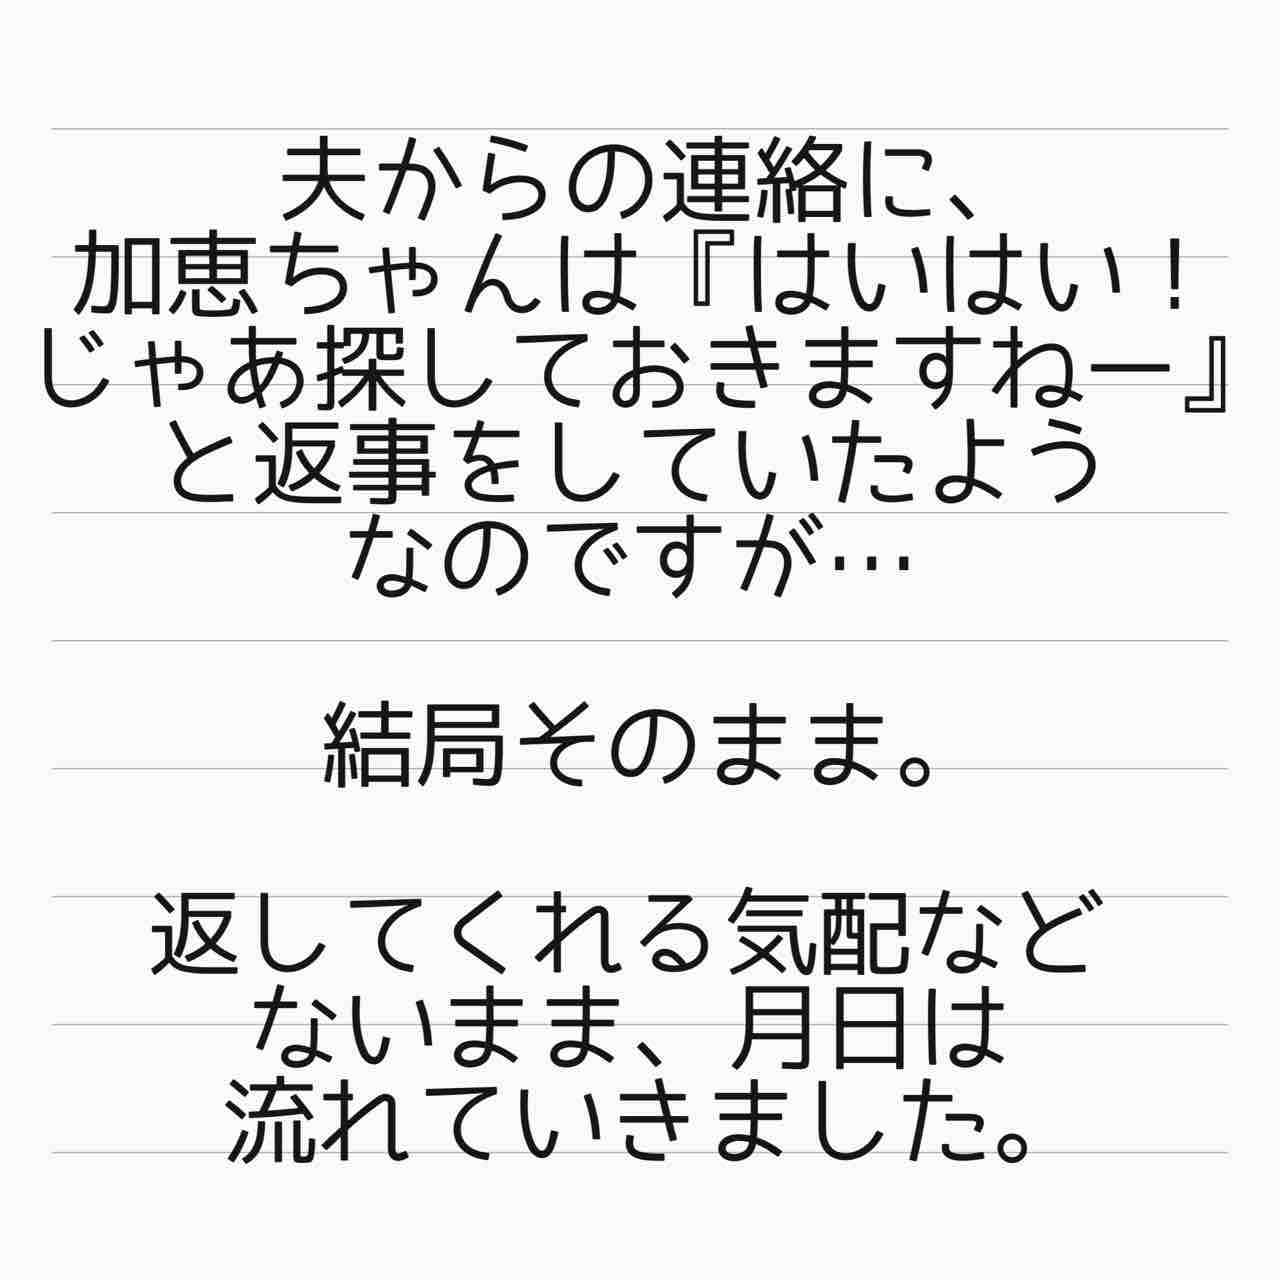 夫からの連絡に、
加恵ちゃんは『はいはい！
じゃあ探しておきますねー』
と返事をしていたよう
なのですが…
結局そのまま。
返してくれる気配など
ないまま、月日は
流れていきました。